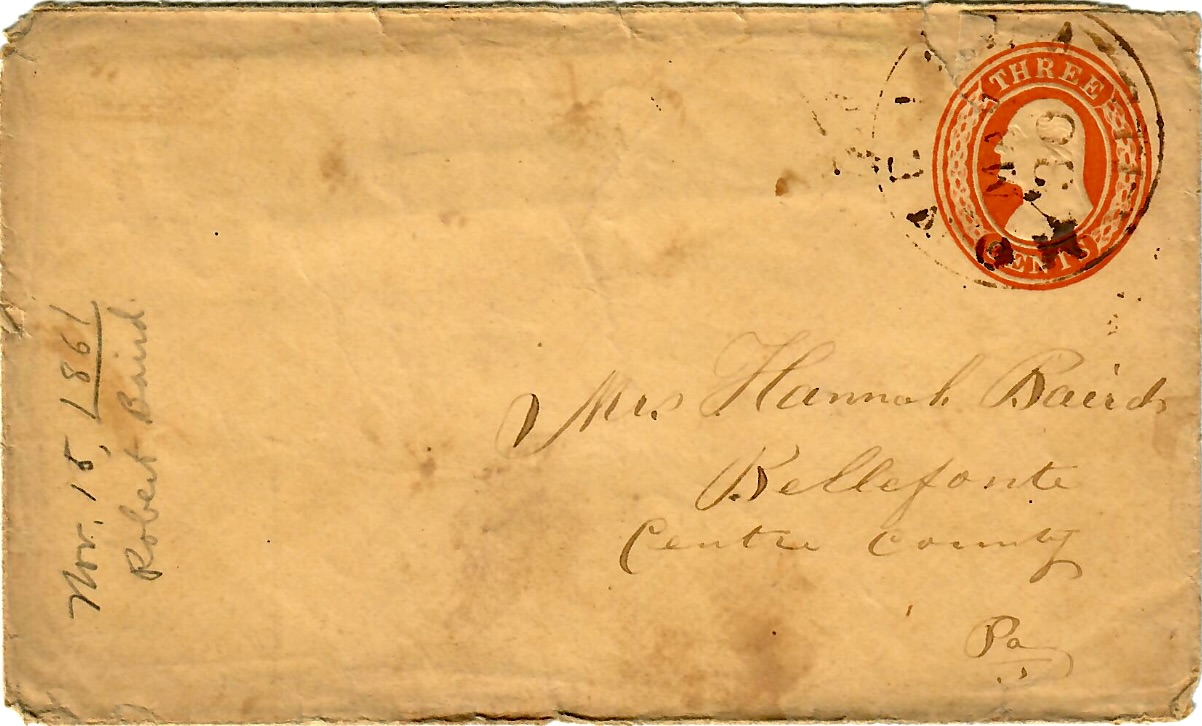 THREE
CENTS
Mrs Hannah Baird
Bellefonte
Centre County
Pa
Nov. 15, 1861
Robert Baird.